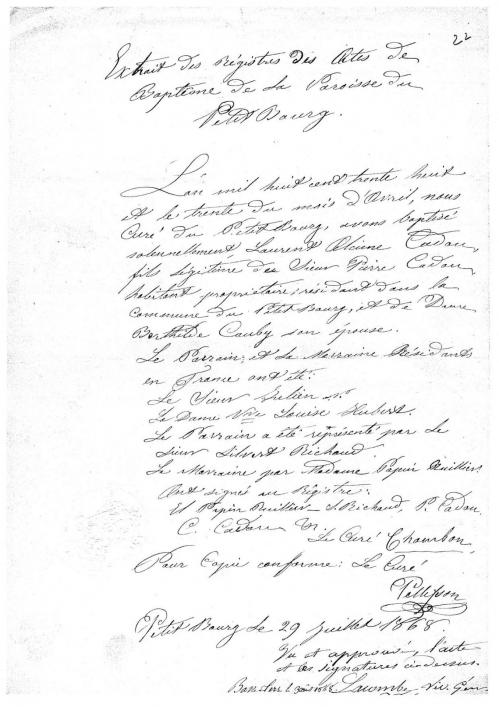 22
Extrait des Régistres des Actes de
Baptême de la Paroisse du
Petit Bourg.
L'an mil huit cent trente huit
et le trente du mois d'Avril, nous
Curé du Petit Bourg, avons baptisé
solennellement Laurent Cadou,
fils légitime du Sieur Pierre Cadou,
habitant propriétaire, résidant dans la
commune du Petit Bourg, et de Dame
Berthilde Cauby son épouse.
Le Parrain et la Marraine Résidants
en France ont été:
Le Sieur
La Dame Vve Louise Hubert.
Le Parrain a été représenté par le
Sieur Silvert Richaud.
La Marraine par Madame Papin Ruillier
Ont signé au Régistre:
El Papin Ruillier - S Richaud, P. Cadou
C. Cadou Le Curé Chambon,
Pour Copie conforme: Le Curé
Pellisson
Petit Bourg le 29 Juillet 1868.
Vu et approuvé, l'acte
et les signatures ci-dessus.
Lacombe, Vic. Gén.